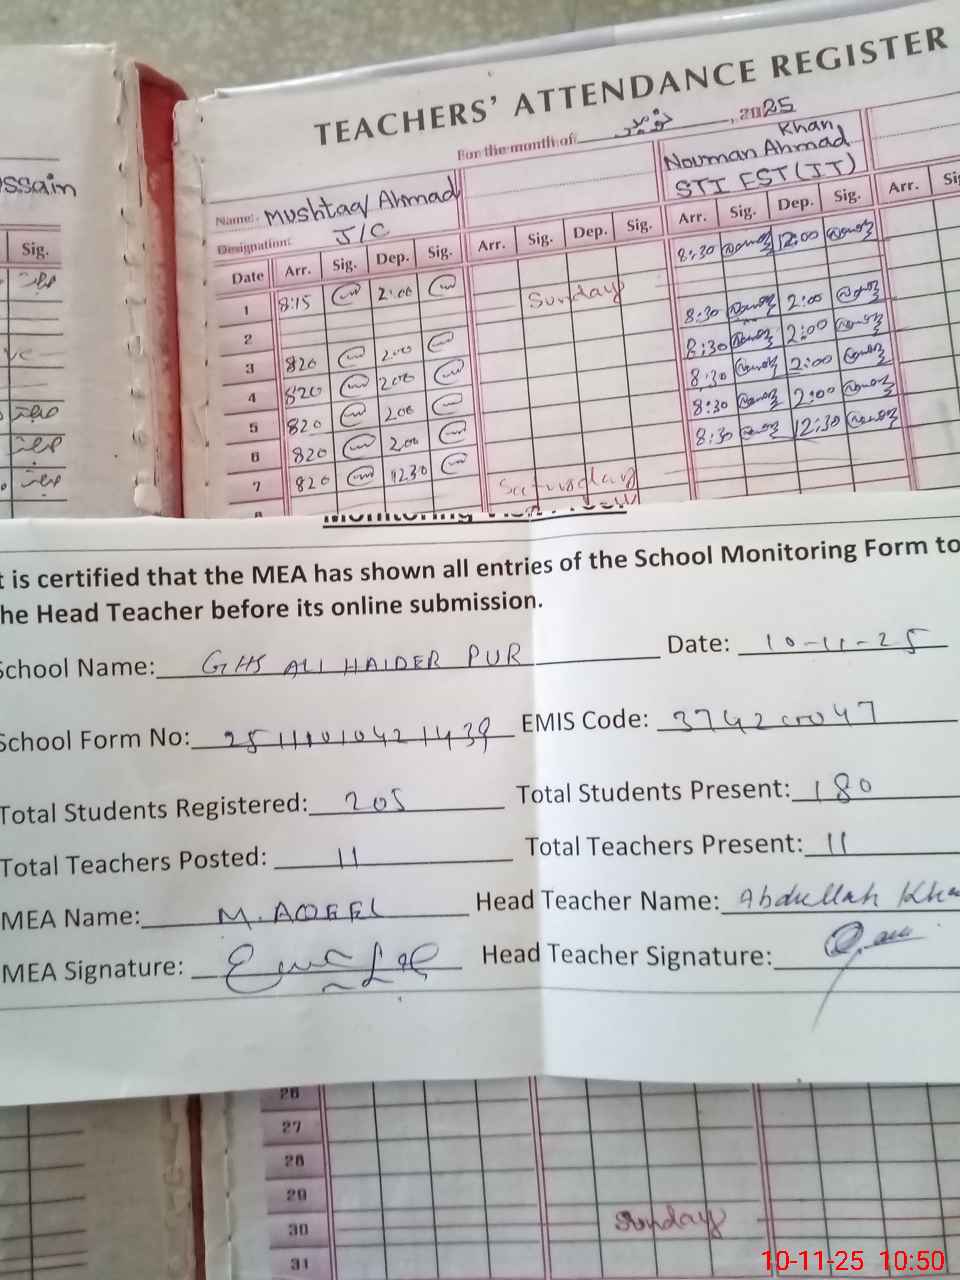 TEACHERS' ATTENDANCE REGISTER
For the month of نومبر, 2025
ssain
Name:- Mushtaq Ahmad
Nouman Ahmad Khan
Designation: J/C
STI EST (IT)
Sig.
Date Arr. Sig. Dep. Sig. Arr. Sig. Dep. Sig. Arr. Sig. Dep. Sig. Arr. Si
1 8:15 2:00 8:30 12:00
2 Sunday
3 820 200 8:30 2:00
4 820 200 8:30 2:00
5 820 200 8:30 2:00
6 820 200 8:30 2:00
7 820 1230 8:30 12:30
8 Saturday
t is certified that the MEA has shown all entries of the School Monitoring Form to
he Head Teacher before its online submission.
School Name: GHS ALI HAIDER PUR Date: 10-11-25
School Form No: EMIS Code:
Total Students Registered: 205 Total Students Present: 180
Total Teachers Posted: 11 Total Teachers Present: 11
MEA Name: M. AQEEL Head Teacher Name: Abdullah Kha
MEA Signature: Head Teacher Signature:
26
27
28
29
30 Sunday
31
10-11-25 10:50